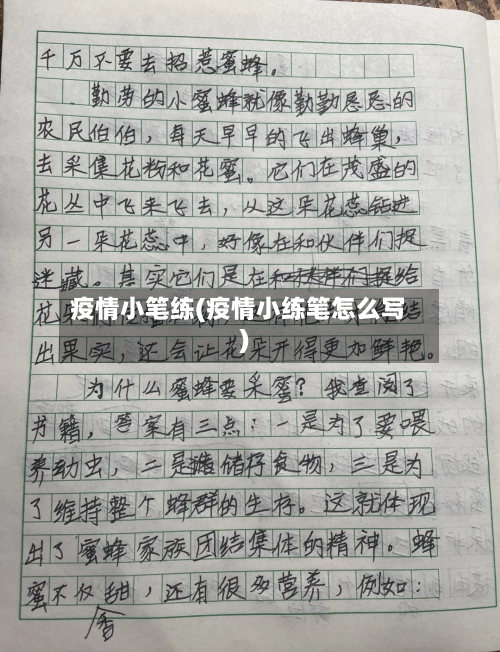 千万不要去招惹蜜蜂。
勤劳的小蜜蜂就像勤勤恳恳的
农民伯伯，每天早早的飞出蜂巢，
去采集花粉和花蜜。它们在茂盛的
花丛中飞来飞去，从这朵花蕊钻进
另一朵花蕊中，好像在和伙伴们捉
迷藏。其实它们是在和伙伴们捉给
疫情小笔练(疫情小练笔怎么写
)
出果实，还会让花朵开得更加鲜艳。
为什么蜜蜂要采蜜？我查阅了
书籍，答案有三点：一是为了要喂
养幼虫，二是储存食物，三是为
了维持整个蜂群的生存。这就体现
出了蜜蜂家族团结集体的精神。蜂
蜜不仅甜，还有很多营养，例如：
香